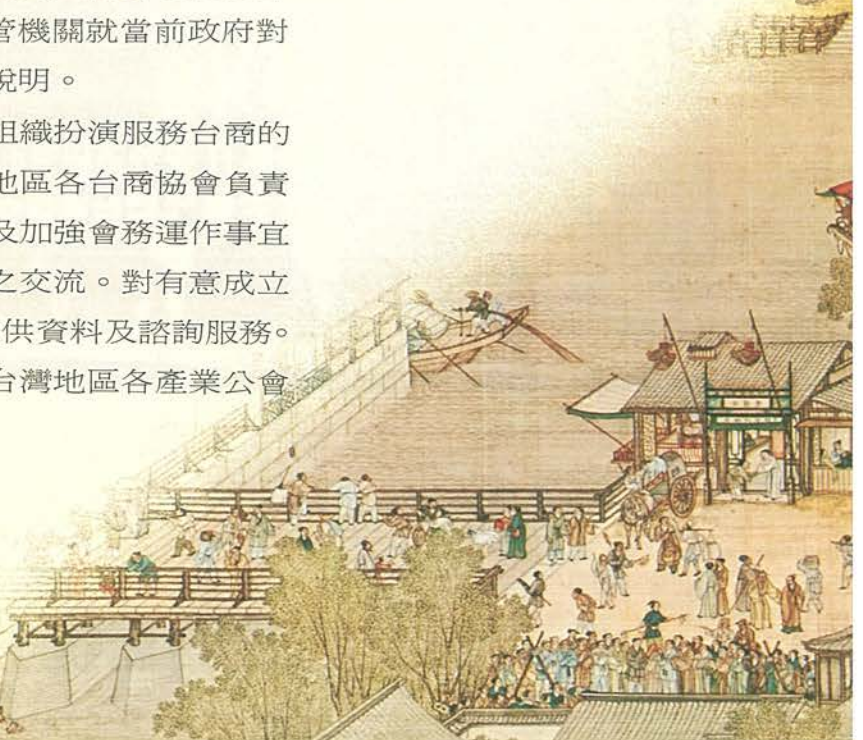 管機關就當前政府對
說明。
組織扮演服務台商的
地區各台商協會負責
及加強會務運作事宜
之交流。對有意成立
供資料及諮詢服務。
台灣地區各產業公會